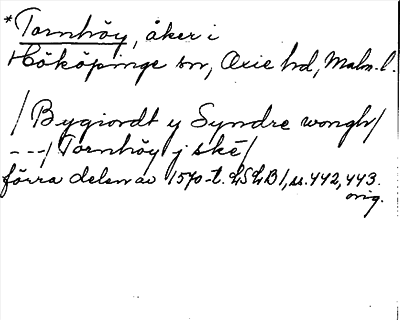 *Tornhöy, åker i
Hököpinge sn, Oxie hd, Malm. l.
/Bygiordt y Syndre wongh/
---/Tornhöy j ské/
förra delen av 1570-t. LSLB1, ss. 442, 443.
orig.